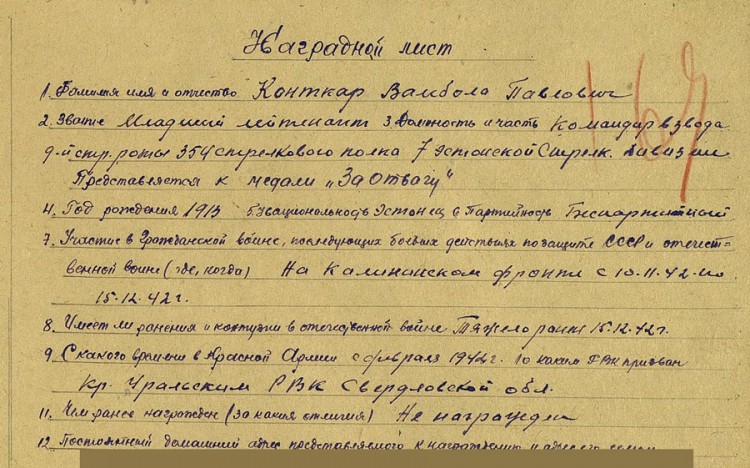 Наградной лист
1. Фамилия имя и отчествоКонткар Вамбола Павлович
2. Звание Младший лейтенант 3. Должность и часть Командир взвода
9-й стр. роты 354 стрелкового полка 7 Эстонской Стрелк. дивизии
Представляется к медали „За Отвагу"
4. Год рождения 1913 5. Национальность Эстонец 6 Партийность Беспартийный
7. Участие в Гражданской войне, последующих боевых действиях по защите СССР и отечест-
венной войне (где, когда) На Калининском фронте с 10.11.42 по
15.12.42 г.
8. Имеет ли ранения и контузии в отечественной войне Тяжело ранен 15.12.42 г.
9. С какого времени в Красной Армии с февраля 1942 г. 10 каким РВК призван
Кр. Уральским РВК Свердловской обл.
11. Чем ранее награжден (за какия отличия) Не награжден
12. Постоянный домашний адрес представляемого к награждению и адрес его семьи
167